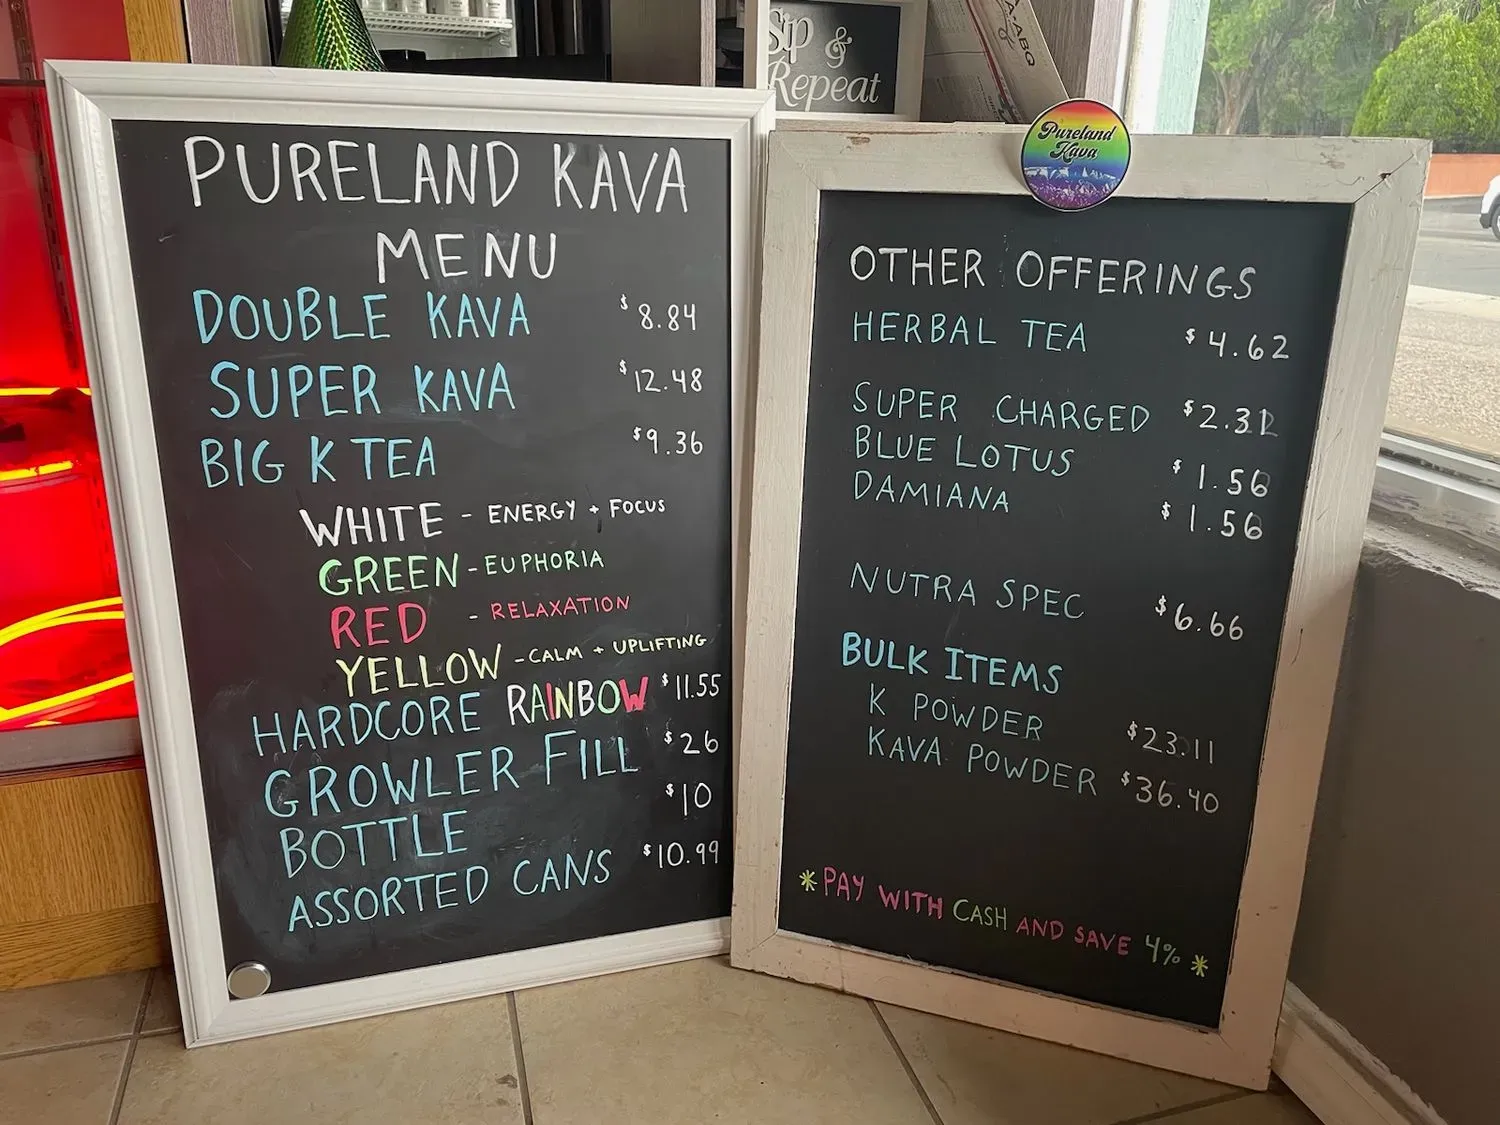 Sip &
Repeat
A-ABQ
PURELAND KAVA
MENU
DOUBLE KAVA $8.84
SUPER KAVA $12.48
BIG K TEA $9.36
WHITE - ENERGY + FOCUS
GREEN - EUPHORIA
RED - RELAXATION
YELLOW - CALM + UPLIFTING
HARDCORE RAINBOW $11.55
GROWLER FILL $26
BOTTLE $10
ASSORTED CANS $10.99
Pureland
Kava
OTHER OFFERINGS
HERBAL TEA $4.62
SUPER CHARGED
BLUE LOTUS $1.56
DAMIANA $1.56
NUTRA SPEC $6.66
BULK ITEMS
K POWDER $23.11
KAVA POWDER $36.40
*PAY WITH CASH AND SAVE 4%*